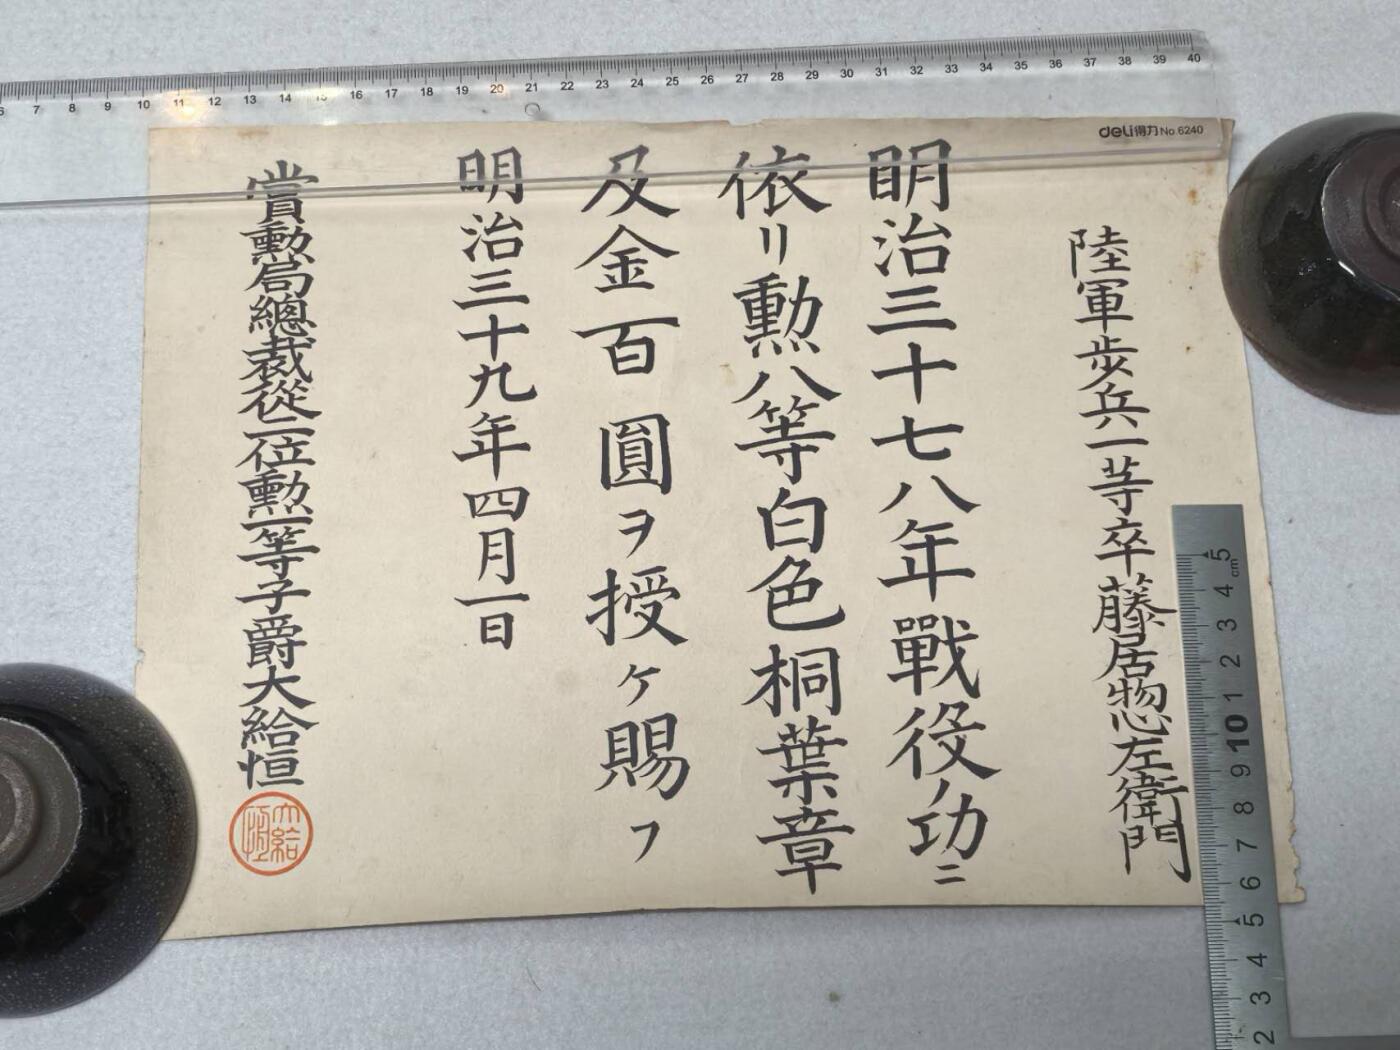 陸軍歩兵一等卒藤居惣左衛門
明治三十七八年戰役ノ功ニ
依リ勲八等白色桐葉章
及金百圓ヲ授ケ賜フ
明治三十九年四月一日
賞勲局總裁從二位勲一等子爵大給恒
大給恒
6 7 8 9 10 11 12 13 14 15 16 17 18 19 20 21 22 23 24 25 26 27 28 29 30 31 32 33 34 35 36 37 38 39 40
deli得力 No.6240
5 cm 4 3 2 1 10 9 8 7 6 5 4 3 2